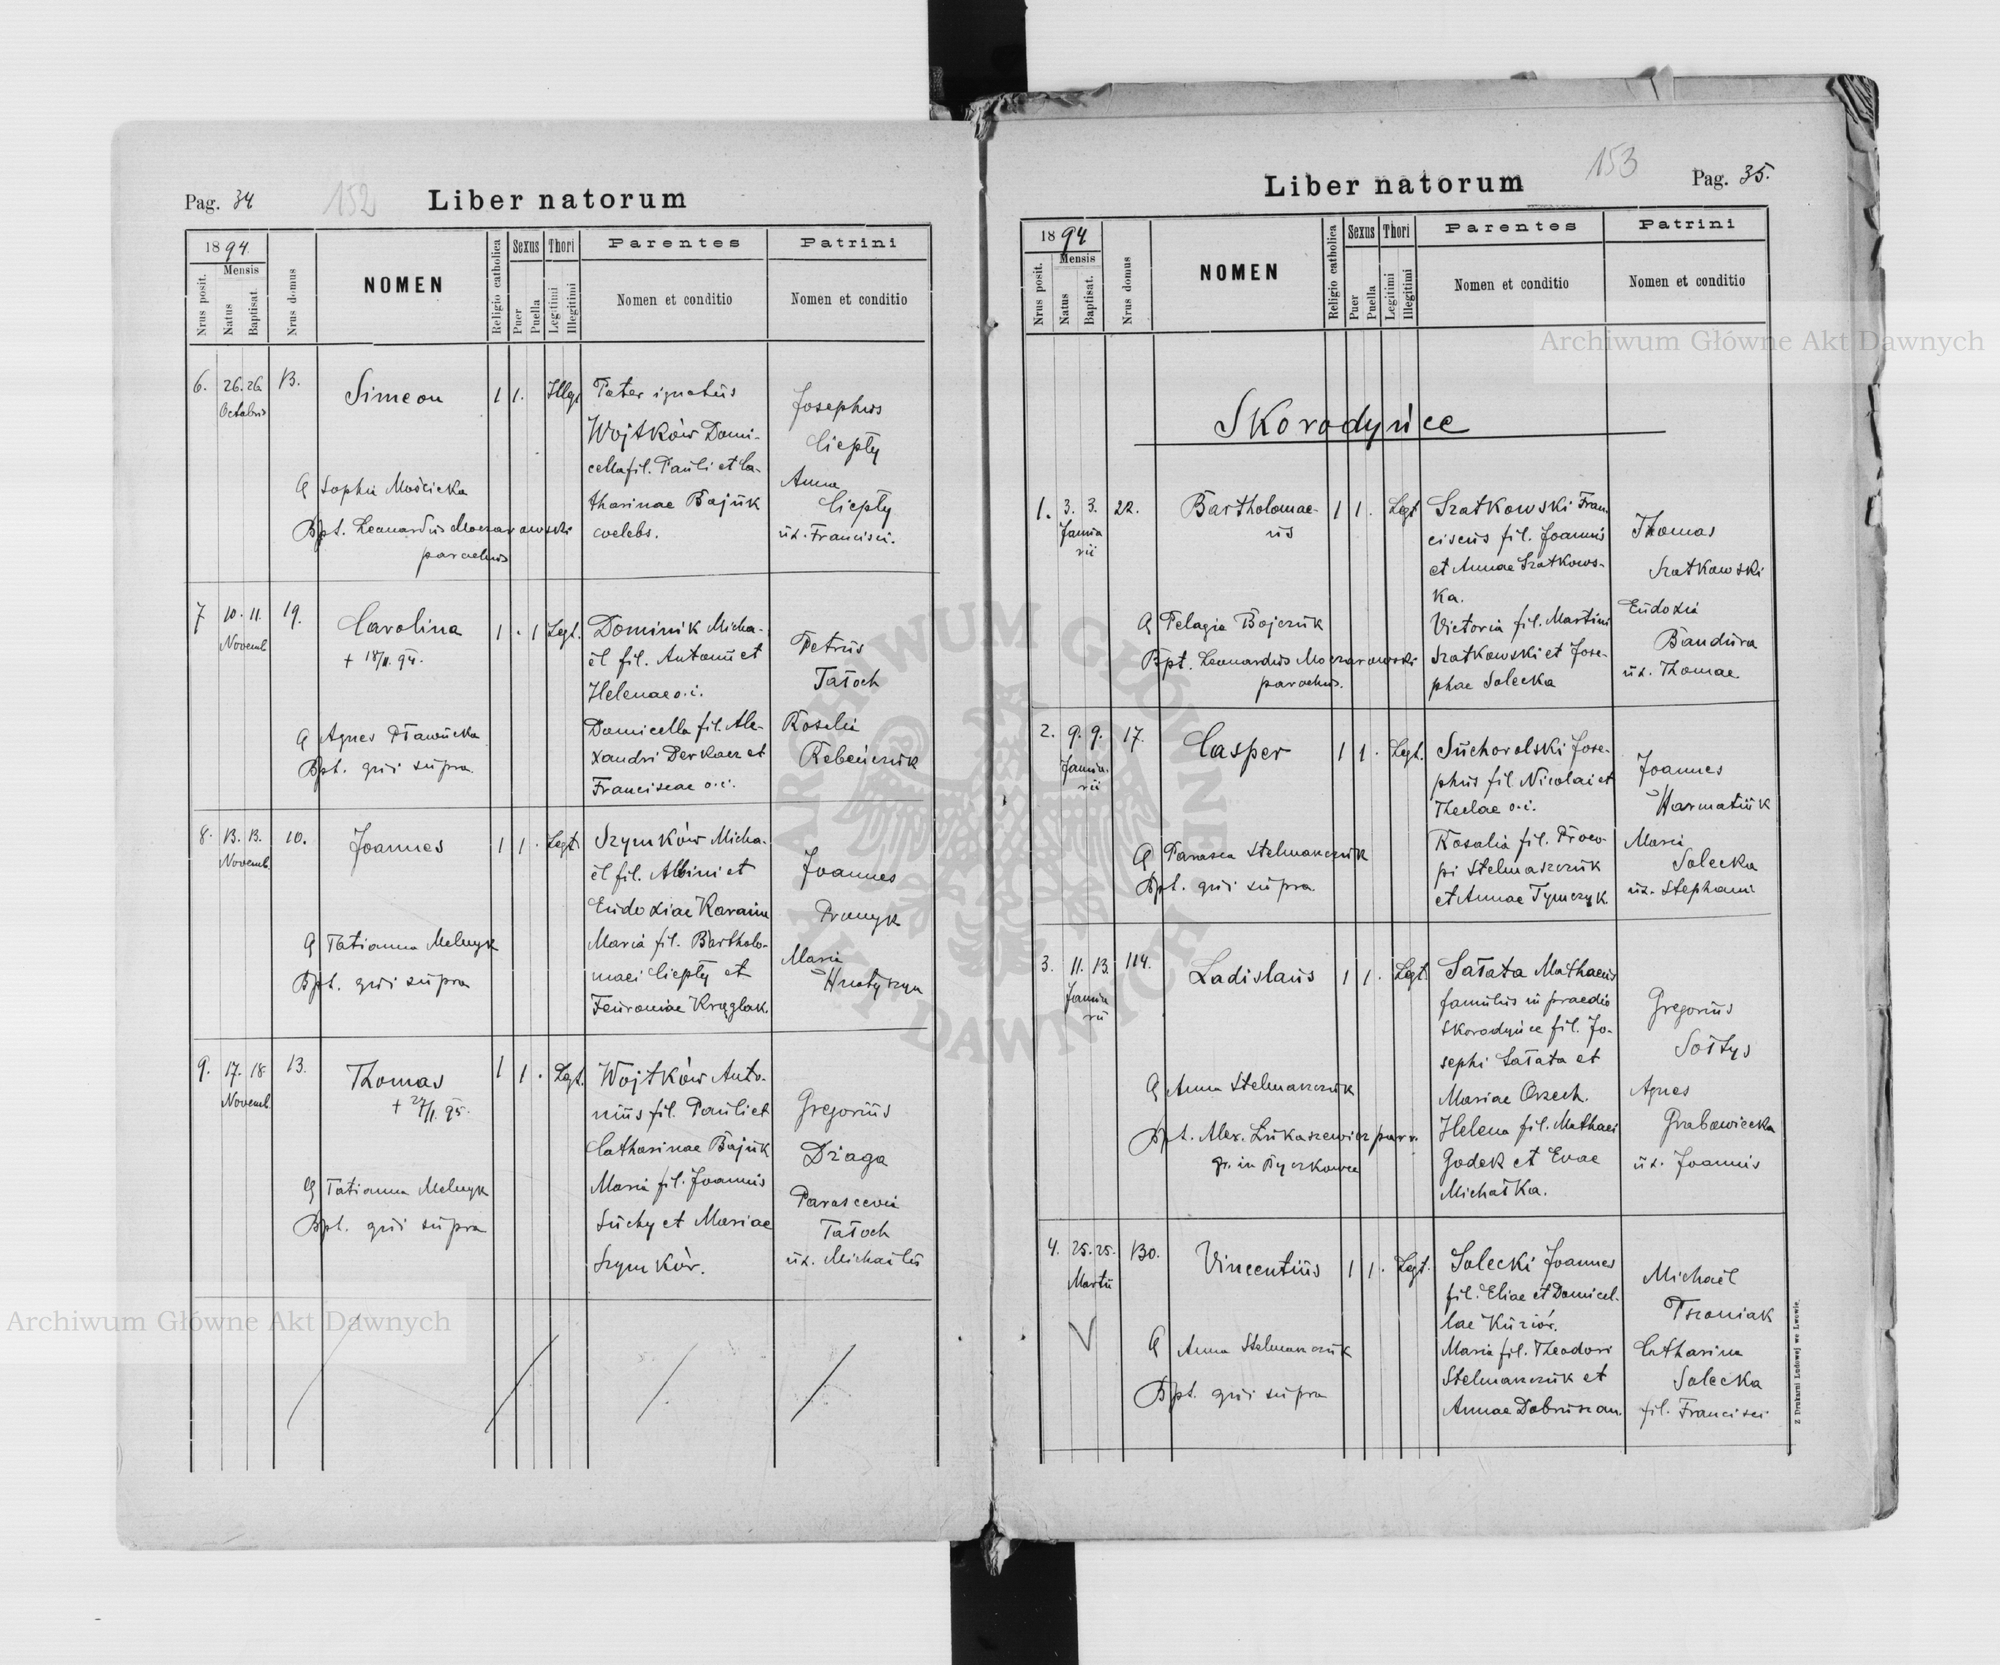 Pag. 34
152
Liber natorum
1894.
Mensis
Nrus posit.
Natus
Baptisat.
Nrus domus
NOMEN
Religio catholica
Sexus
Puer
Puella
Thori
Legitimi
Illegitimi
Parentes
Nomen et conditio
Patrini
Nomen et conditio
6. 26. 26. 13. Simeon 1 1. Illeg.
Octobris
Pater ignotus
Wojtków Domi-
cella fil. Pauli et Ca-
tharinae Bajuk
coelebs.
Josephus
Ciepły
Anna
Ciepły
ux. Francisci.
Sophia Mościcka
Bpt. Leonardus Moczarowski
parochus
7 10. 11. 19. Carolina 1 . 1 Legt.
Novemb.
+ 18/11. 94.
Dominik Micha-
ël fil. Antonii et
Helenae o. i.
Domicella fil. Ale-
xandri Derkacz et
Franciscae o. i.
Petrus
Tatoch
Rosalia
Agnes
Bpt. qui supra
8. 13. 13. 10. Joannes 1 1 . Legt.
Novemb.
Szymków Micha-
ël fil. Albini et
Eudoxiae
Maria fil. Bartholo-
maei Ciepły et
Joannes
Maria
Tatianna Melnyk
Bpt. qui supra
9. 17. 18 13. Thomas 1 1 . Legt.
Novemb.
Wojtków Anto-
nius fil. Pauli et
Catharinae Bajuk
Maria fil. Joannis
Suchy et Mariae
Szymków.
Gregorius
Parascevia
Tatoch
ux. Michaëlis
Tatianna Melnyk
Bpt. qui supra
Liber natorum
153
Pag. 35.
1894
Mensis
Nrus posit.
Natus
Baptisat.
Nrus domus
NOMEN
Religio catholica
Sexus
Puer
Puella
Thori
Legitimi
Illegitimi
Parentes
Nomen et conditio
Patrini
Nomen et conditio
Skorodyńce
1. 3. 3. 22. Bartholomae- 1 1. Legt
Janua us
rii
Szatkowski Fran
ciscus fil. Joannis
et Annae Szatkows-
ka.
Victoria fil. Martini
Szatkowski et Jose-
phae Solecka
Thomas
Szatkowski
Eudoxia
Bandura
ux. Thomae
Pelagia Bojczuk
Bpt. Leonardus Moczarowski
parochus.
2. 9. 9. 17. Casper 1 1 . Legt.
Janua
rii
Suchorolski Jose-
phus fil Nicolai et
Theclae o. i.
Rosalia fil. Proco-
pi Stelmaszczuk
et Annae Tymczyk
Joannes
Harmatiuk
Maria
Solecka
ux. Stephani
Parasca Stelmaszczuk
Bpt. qui supra
3. 11. 13. 114. Ladislaus 1 1 . Legt.
Janua
rii
Sałata Mathaeus
famulus in praedio
Skorodyńce fil. Jo-
sephi Sałata et
Mariae Orzech.
Helena fil. Mathaei
Godek et Evae
Michałka.
Gregorius
Sołtys
Agnes
Grabowiecka
ux. Joannis
Anna Stelmaszczuk
Bpt. Alex. Łukaszewicz par.
gr. in Byczkowce
4. 25. 25. 130. Vincentius 1 1 . Legt.
Martii
Solecki Joannes
fil. Eliae et Domicel-
lae Kuziów.
Maria fil. Theodori
Stelmaszczuk et
Annae
Michaël
Catharina
Solecka
fil. Francisci
Anna Stelmaszczuk
Bpt. qui supra
Z Drukarni Ludowej we Lwowie.
Archiwum Główne Akt Dawnych
Archiwum Główne Akt Dawnych
ARCHIWUM GŁÓWNE AKT DAWNYCH